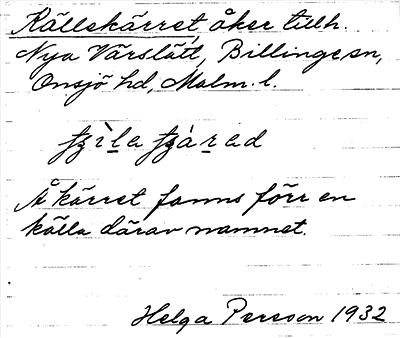 Källskärret, åker tillh.
Nya Värslätt, Billinge sn,
Onsjö hd, Malm. l.
Å kärret fanns förr en
källa därav namnet.
Helga Persson 1932